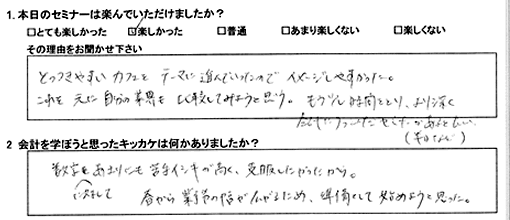 1.本日のセミナーは楽んでいただけましたか?
□とても楽しかった ☑楽しかった □普通 □あまり楽しくない □楽しくない
その理由をお聞かせ下さい
とっつきやすい カフェを テーマに 進んでいったので イメージしやすかった。
これを 元に 自分の業界も 比較してみようと思う。もう少し時間をとり、より深く
2 会計を学ぼうと思ったキッカケは何かありましたか?
数字をあまりにも 苦手イシキが高く、克服したかったから。
に対して
春から 業務の幅が広がるため、準備として 始めようと思った。